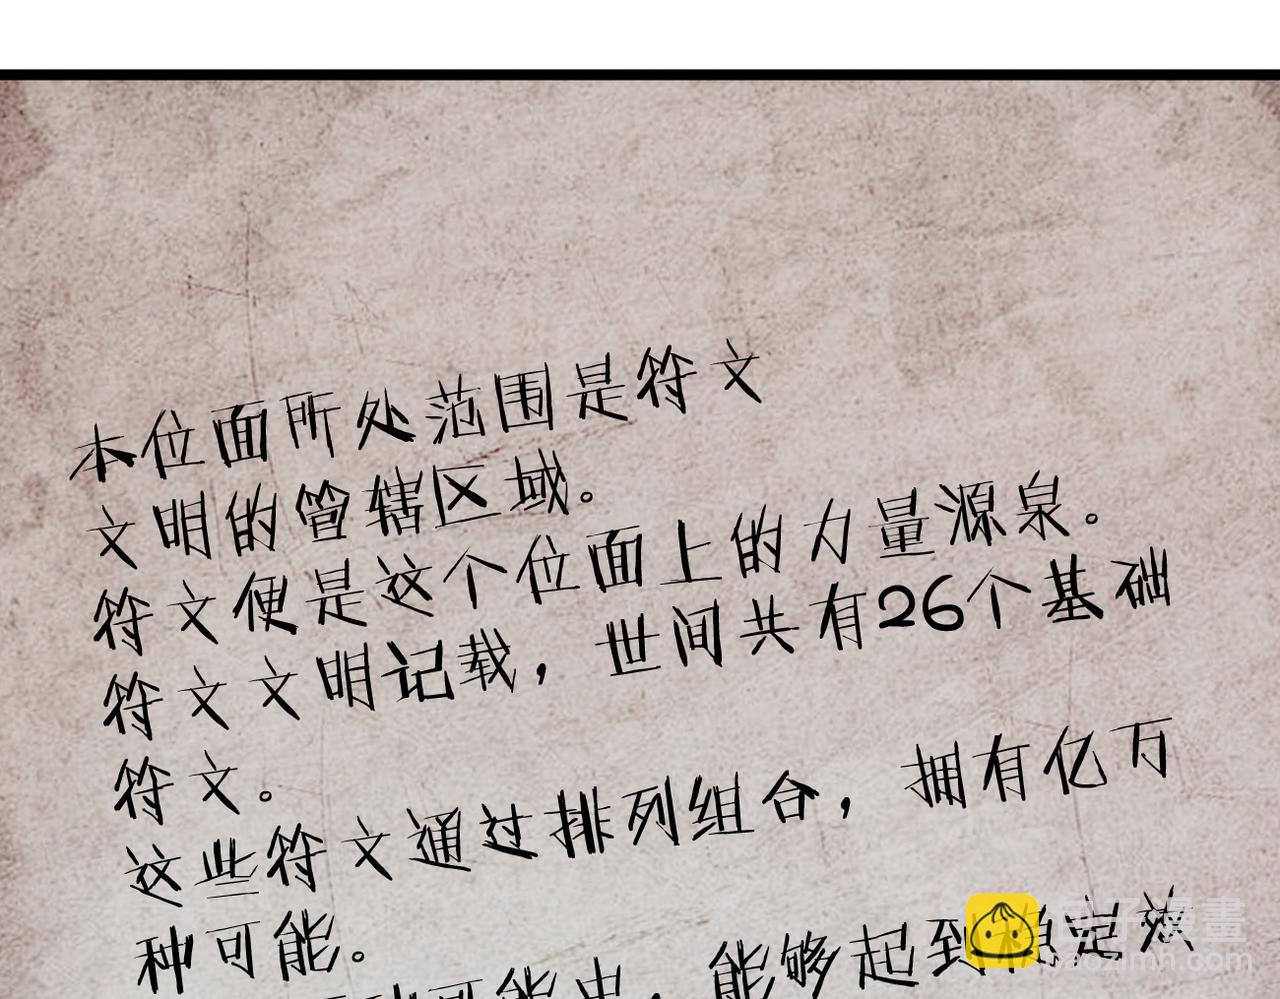 本位面所处范围是符文
文明的管辖区域。
符文便是这个位面上的力量源泉。
符文文明记载，世间共有26个基础
符文。
这些符文通过排列组合，拥有亿万
种可能。
可能中，能够起到稳定效
包子漫畫
baozimh.com